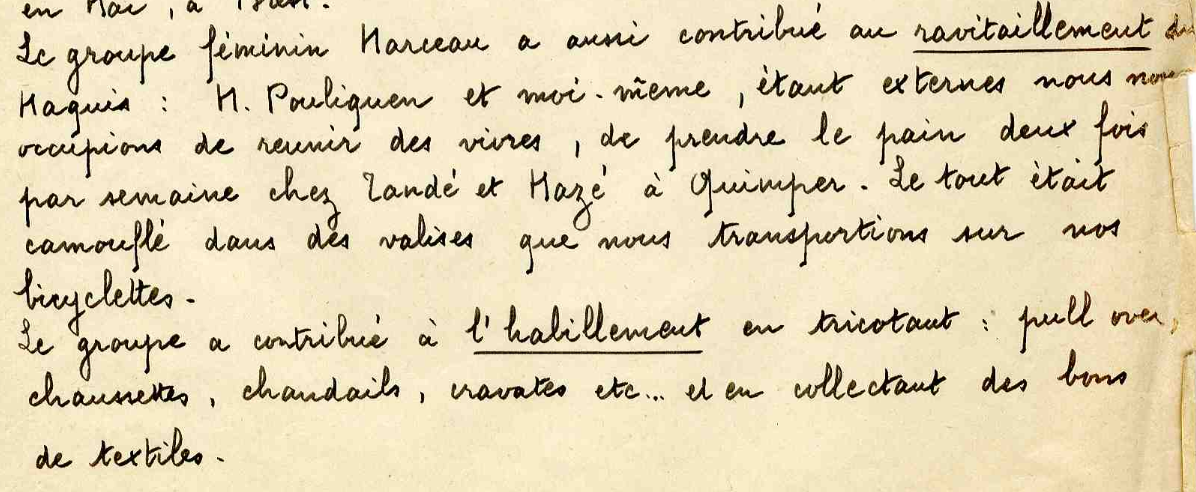 en Mai, à Brest.
Le groupe féminin Marceau a aussi contribué au ravitaillement du
Maquis : M. Pouliquen et moi-même, étant externes nous nous
occupions de reunir des vivres, de prendre le pain deux fois
par semaine chez Tandé et Mazé à Quimper. Le tout était
camouflé dans des valises que nous transportions sur nos
bicyclettes.
Le groupe a contribué à l'habillement en tricotant : pull over,
chaussettes, chandails, cravates etc... et en collectant des bons
de textiles.